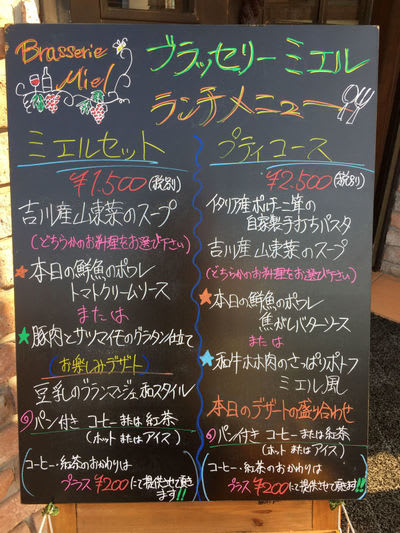 Brasserie
Miel
ブラッセリー ミエル
ランチメニュー
ミエルセット
¥1,500(税別)
吉川産山東菜のスープ
(どちらかのお料理をお選び下さい)
★本日の鮮魚のポワレ
トマトクリームソース
または
★豚肉とサツマイモのグラタン仕立て
お楽しみデザート
豆乳のブランマンジェ和スタイル
パン付き コーヒーまたは紅茶
(ホットまたはアイス)
(コーヒー・紅茶のおかわりは
プラス¥200にて提供させて頂き
ます!!)
プティコース
¥2,500(税別)
イタリア産ポルチーニ茸の
自家製手打ちパスタ
吉川産山東菜のスープ
(どちらかのお料理をお選び下さい)
★本日の鮮魚のポワレ
焦がしバターソース
または
★和牛ホホ肉のさっぱりポトフ
ミエル風
本日のデザートの盛り合わせ
パン付き コーヒーまたは紅茶
(ホットまたはアイス)
(コーヒー・紅茶のおかわりは
プラス¥200にて提供させて頂きます!!)